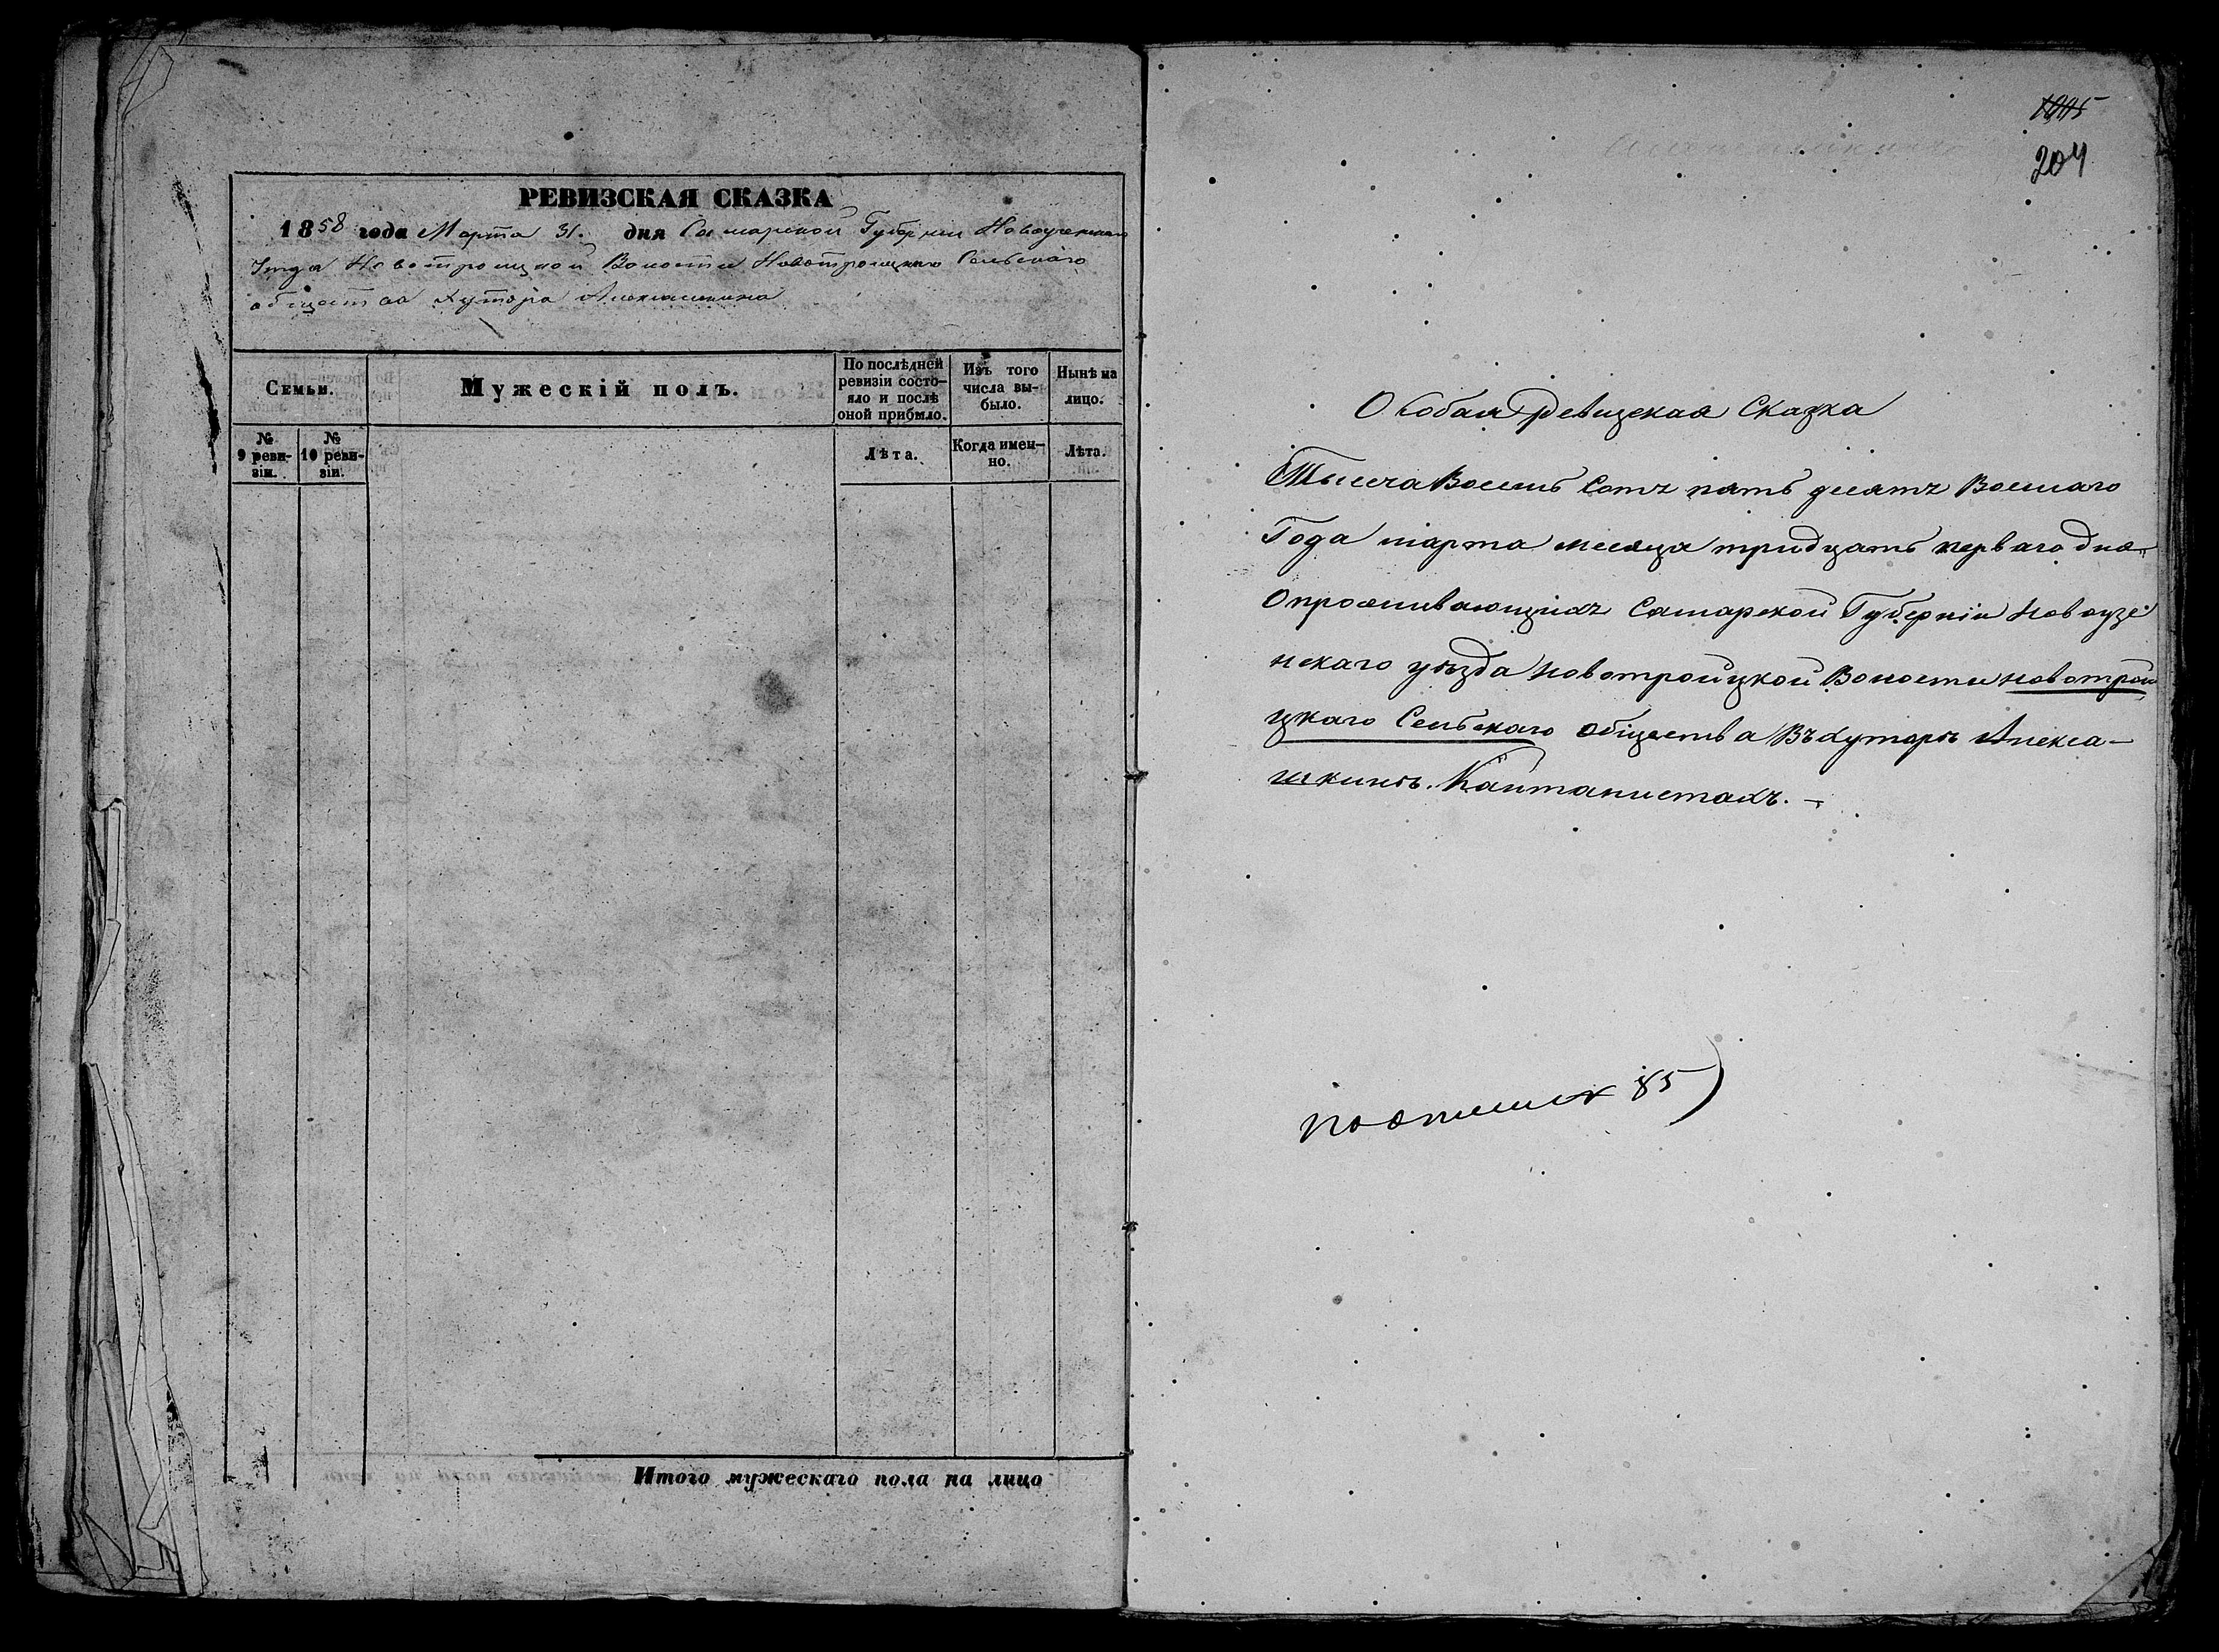 РЕВИЗСКАЯ СКАЗКА
1858 года Марта 31. дня Самарской Губернии Новоузенскаго
Уезда Новотроицкой Волости Новотроицкаго Сельскаго
общества Хутора Алексашкина
Семьи.
Мужескій полъ.
По послѣдней
ревизіи состо-
яло и послѣ
оной прибыло.
Изъ того
числа вы-
было.
Нынѣ на
лицо.
№
9 реви-
зіи.
№
10 реви-
зіи.
Лѣта.
Когда имен-
но.
Лѣта.
Итого мужескаго пола на лицо
204
Особая Ревизская Сказка
Тысеча Восемь Сотъ пять десятъ Восмаго
Года марта месяца тридцать перваго дня
О проживающихъ Самарской Губерніи Новоузе
нскаго уѣзда Новотроицкой Волости новотрои
цкаго Сельскаго общества Въ хуторѣ Алекса-
шкинѣ. Кантанистахъ.
85